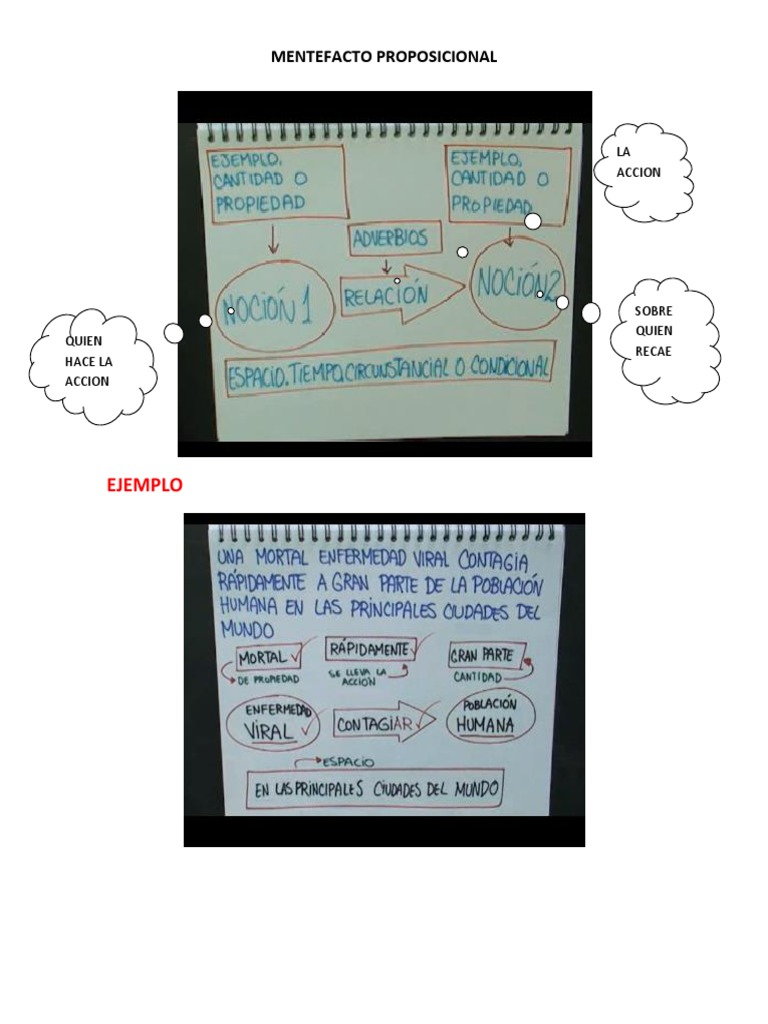 MENTEFACTO PROPOSICIONAL
EJEMPLO,
CANTIDAD O
PROPIEDAD
EJEMPLO,
CANTIDAD O
PROPIEDAD
LA
ACCION
ADVERBIOS
NOCIÓN 1
RELACIÓN
NOCIÓN2
QUIEN
HACE LA
ACCION
SOBRE
QUIEN
RECAE
ESPACIO,TIEMPO,CIRCUNSTANCIAL O CONDICIONAL
EJEMPLO
UNA MORTAL ENFERMEDAD VIRAL CONTAGIA
RÁPIDAMENTE A GRAN PARTE DE LA POBLACIÓN
HUMANA EN LAS PRINCIPALES CIUDADES DEL
MUNDO
MORTAL
RÁPIDAMENTE
GRAN PARTE
DE PROPIEDAD
SE LLEVA LA
ACCIÓN
CANTIDAD
ENFERMEDAD
VIRAL
CONTAGIAR
POBLACIÓN
HUMANA
ESPACIO
EN LAS PRINCIPALES CIUDADES DEL MUNDO